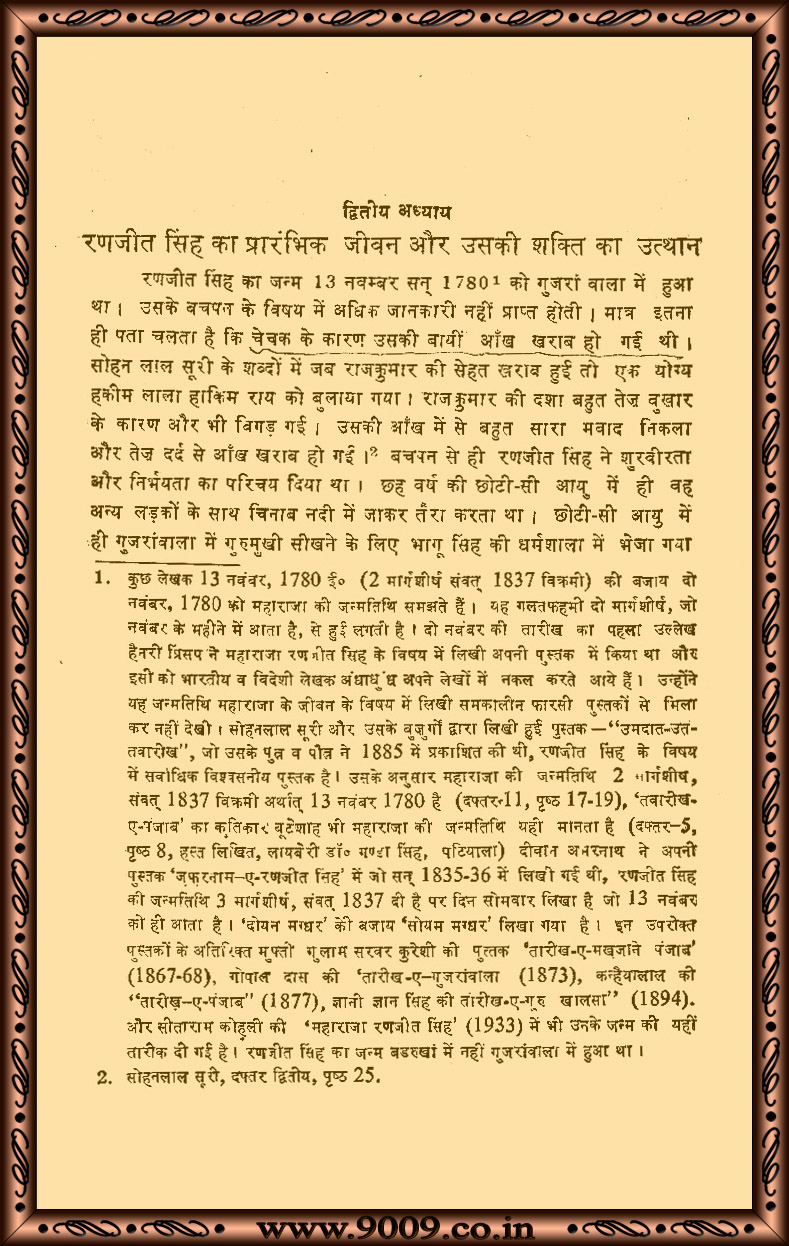 द्वितीय अध्याय
रणजीत सिंह का प्रारंभिक जीवन और उसकी शक्ति का उत्थान
रणजीत सिंह का जन्म 13 नवम्बर सन् 1780¹ को गुजरां वाला में हुआ
था। उसके बचपन के विषय में अधिक जानकारी नहीं प्राप्त होती। मात्र इतना
ही पता चलता है कि चेचक के कारण उसकी बायीं आँख खराब हो गई थी।
सोहन लाल सूरी के शब्दों में जब राजकुमार की सेहत खराब हुई तो एक योग्य
हकीम लाला हाकिम राय को बुलाया गया। राजकुमार की दशा बहुत तेज़ बुखार
के कारण और भी बिगड़ गई। उसकी आँख में से बहुत सारा मवाद निकला
और तेज़ दर्द से आँख खराब हो गई।² बचपन से ही रणजीत सिंह ने शुरवीरता
और निर्भयता का परिचय दिया था। छह वर्ष की छोटी-सी आयु में ही वह
अन्य लड़कों के साथ चिनाब नदी में जाकर तैरा करता था। छोटी-सी आयु में
ही गुजरांवाला में गुरुमुखी सीखने के लिए भागू सिंह की धर्मशाला में भेजा गया
1. कुछ लेखक 13 नवंबर, 1780 ई० (2 मार्गशीर्ष संवत् 1837 विक्रमी) की बजाय दो
नवंबर, 1780 को महाराजा की जन्मतिथि समझते हैं। यह गलतफहमी दो मार्गशीर्ष, जो
नवंबर के महीने में आता है, से हुई लगती है। दो नवंबर की तारीख का पहला उल्लेख
हैनरी प्रिंसप ने महाराजा रणजीत सिंह के विषय में लिखी अपनी पुस्तक में किया था और
इसी को भारतीय व विदेशी लेखक अंधाधुंध अपने लेखों में नकल करते आये हैं। उन्होंने
यह जन्मतिथि महाराजा के जीवन के विषय में लिखी समकालीन फारसी पुस्तकों से मिला
कर नहीं देखी। सोहनलाल सूरी और उसके बुजुर्गों द्वारा लिखी हुई पुस्तक—"उमदात-उत-
तवारीख", जो उसके पुत्र व पौत्र ने 1885 में प्रकाशित की थी, रणजीत सिंह के विषय
में सर्वाधिक विश्वसनीय पुस्तक है। उसके अनुसार महाराजा की जन्मतिथि 2 मार्गशीष,
संवत् 1837 विक्रमी अर्थात् 13 नवंबर 1780 है (दफ्तर-11, पृष्ठ 17-19), 'तवारीख-
ए-पंजाब' का कृतिकार बूटेशाह भी महाराजा की जन्मतिथि यही मानता है (दफ्तर–5,
पृष्ठ 8, हस्त लिखित, लायब्रेरी डॉ० गण्डा सिंह, पटियाला) दीवान अमरनाथ ने अपनी
पुस्तक 'ज़फरनाम–ए-रणजीत सिंह' में जो सन् 1835-36 में लिखी गई थी, रणजीत सिंह
की जन्मतिथि 3 मार्गशीष, संवत् 1837 दी है पर दिन सोमवार लिखा है जो 13 नवंबर
को ही आता है। 'दोयन मग्घर' की बजाय 'सोयम मग्घर' लिखा गया है। इन उपरोक्त
पुस्तकों के अतिरिक्त मुफ्ती गुलाम सरवर कुरेशी की पुस्तक 'तारीख-ए-मखज़ाने पंजाब'
(1867-68), गोपाल दास की 'तारीख-ए–गुजरांवाला (1873), कन्हैयालाल की
"तारीख़–ए-पंजाब" (1877), ज्ञानी ज्ञान सिंह की तारीख-ए-गुरु खालसा" (1894).
और सीताराम कोहली की 'महाराजा रणजीत सिंह' (1933) में भी उनके जन्म की यहीं
तारीक दी गई है। रणजीत सिंह का जन्म बडरुखां में नहीं गुजरांवाला में हुआ था।
2. सोहनलाल सूरी, दफ्तर द्वितीय, पृष्ठ 25.
www.9009.co.in